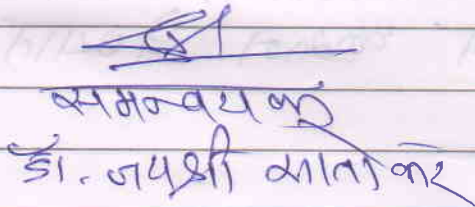 समन्वयक
डॉ. जयश्री सातोकर